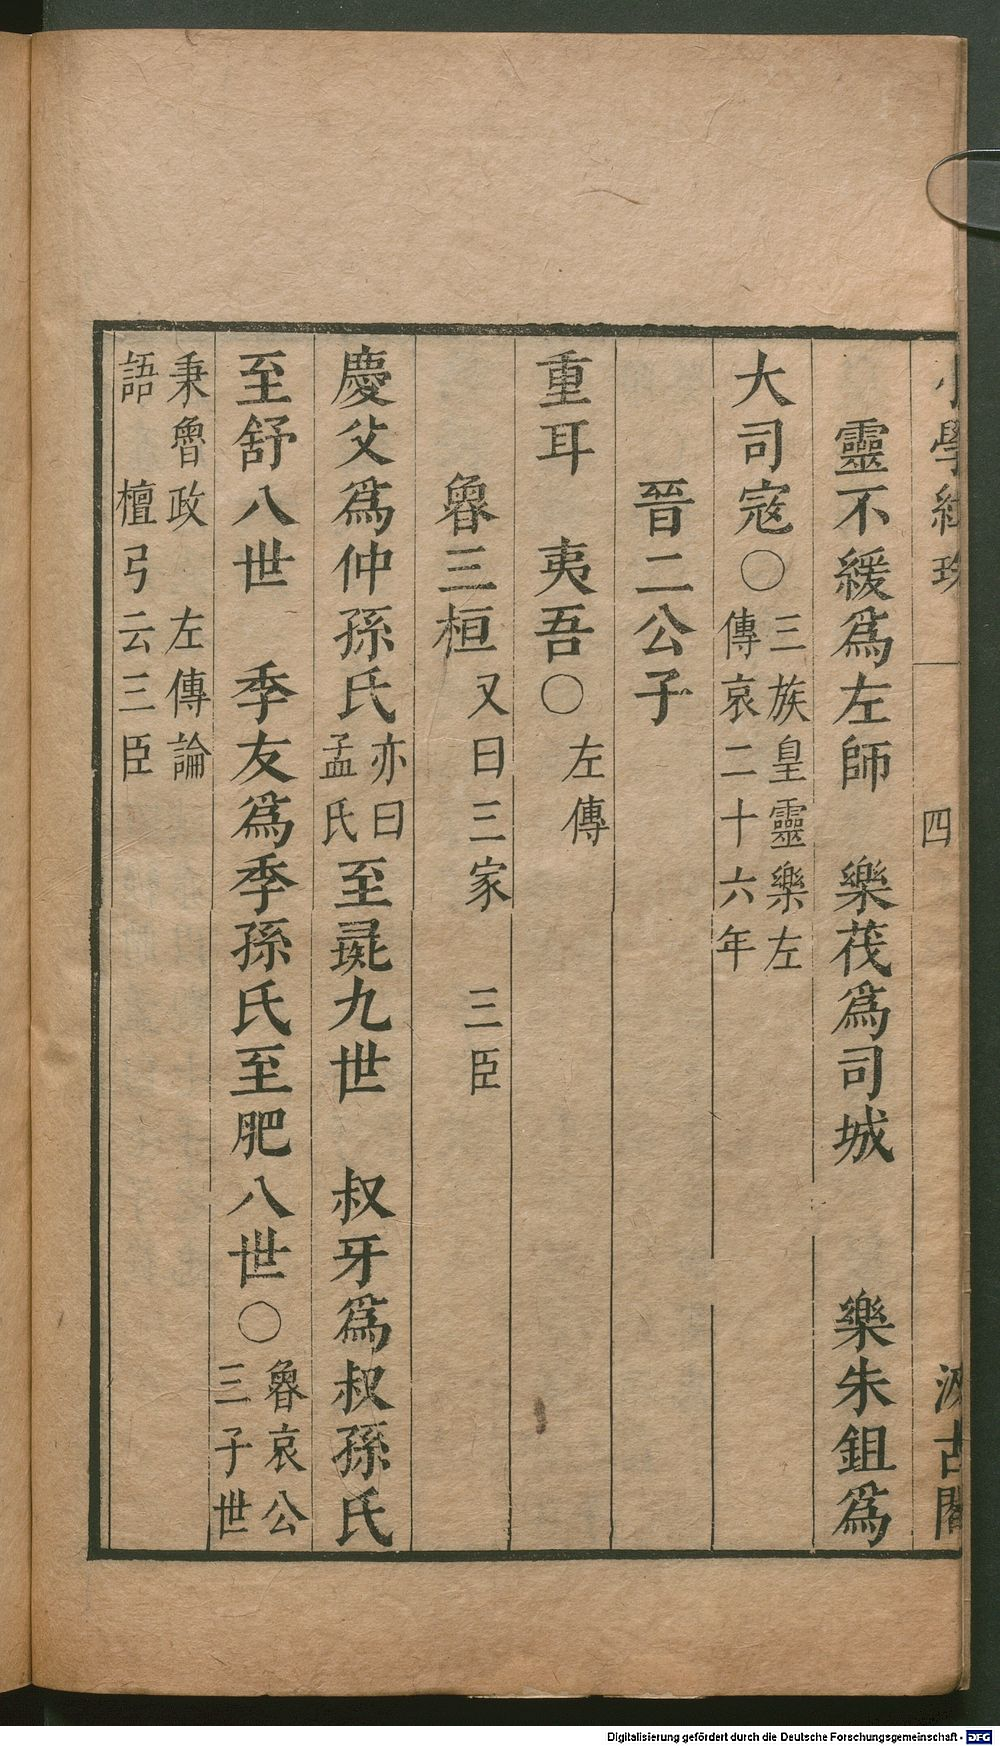 小學紺珠　四　汲古閣
靈不緩爲左師　樂茷爲司城　樂朱鉏爲
大司寇〇三族皇靈樂左
傳哀二十六年
晉二公子
重耳　夷吾〇左傳
魯三桓　又曰三家　三臣
慶父爲仲孫氏亦曰
孟氏至彘九世　叔牙爲叔孫氏
至舒八世　季友爲季孫氏至肥八世〇魯哀公
三子世
秉魯政　左傳論
語　檀弓云三臣
Digitalisierung gefördert durch die Deutsche Forschungsgemeinschaft - DFG